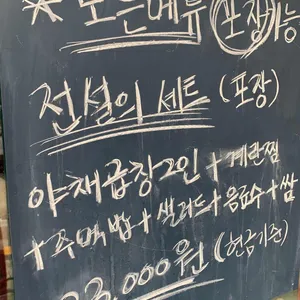 * 모든메뉴 포장가능
전설의 세트 (포장)
야채곱창2인 + 계란찜
+ 주먹밥 + 샐러드 + 음료수 + 쌈
23,000원 (현금기준)